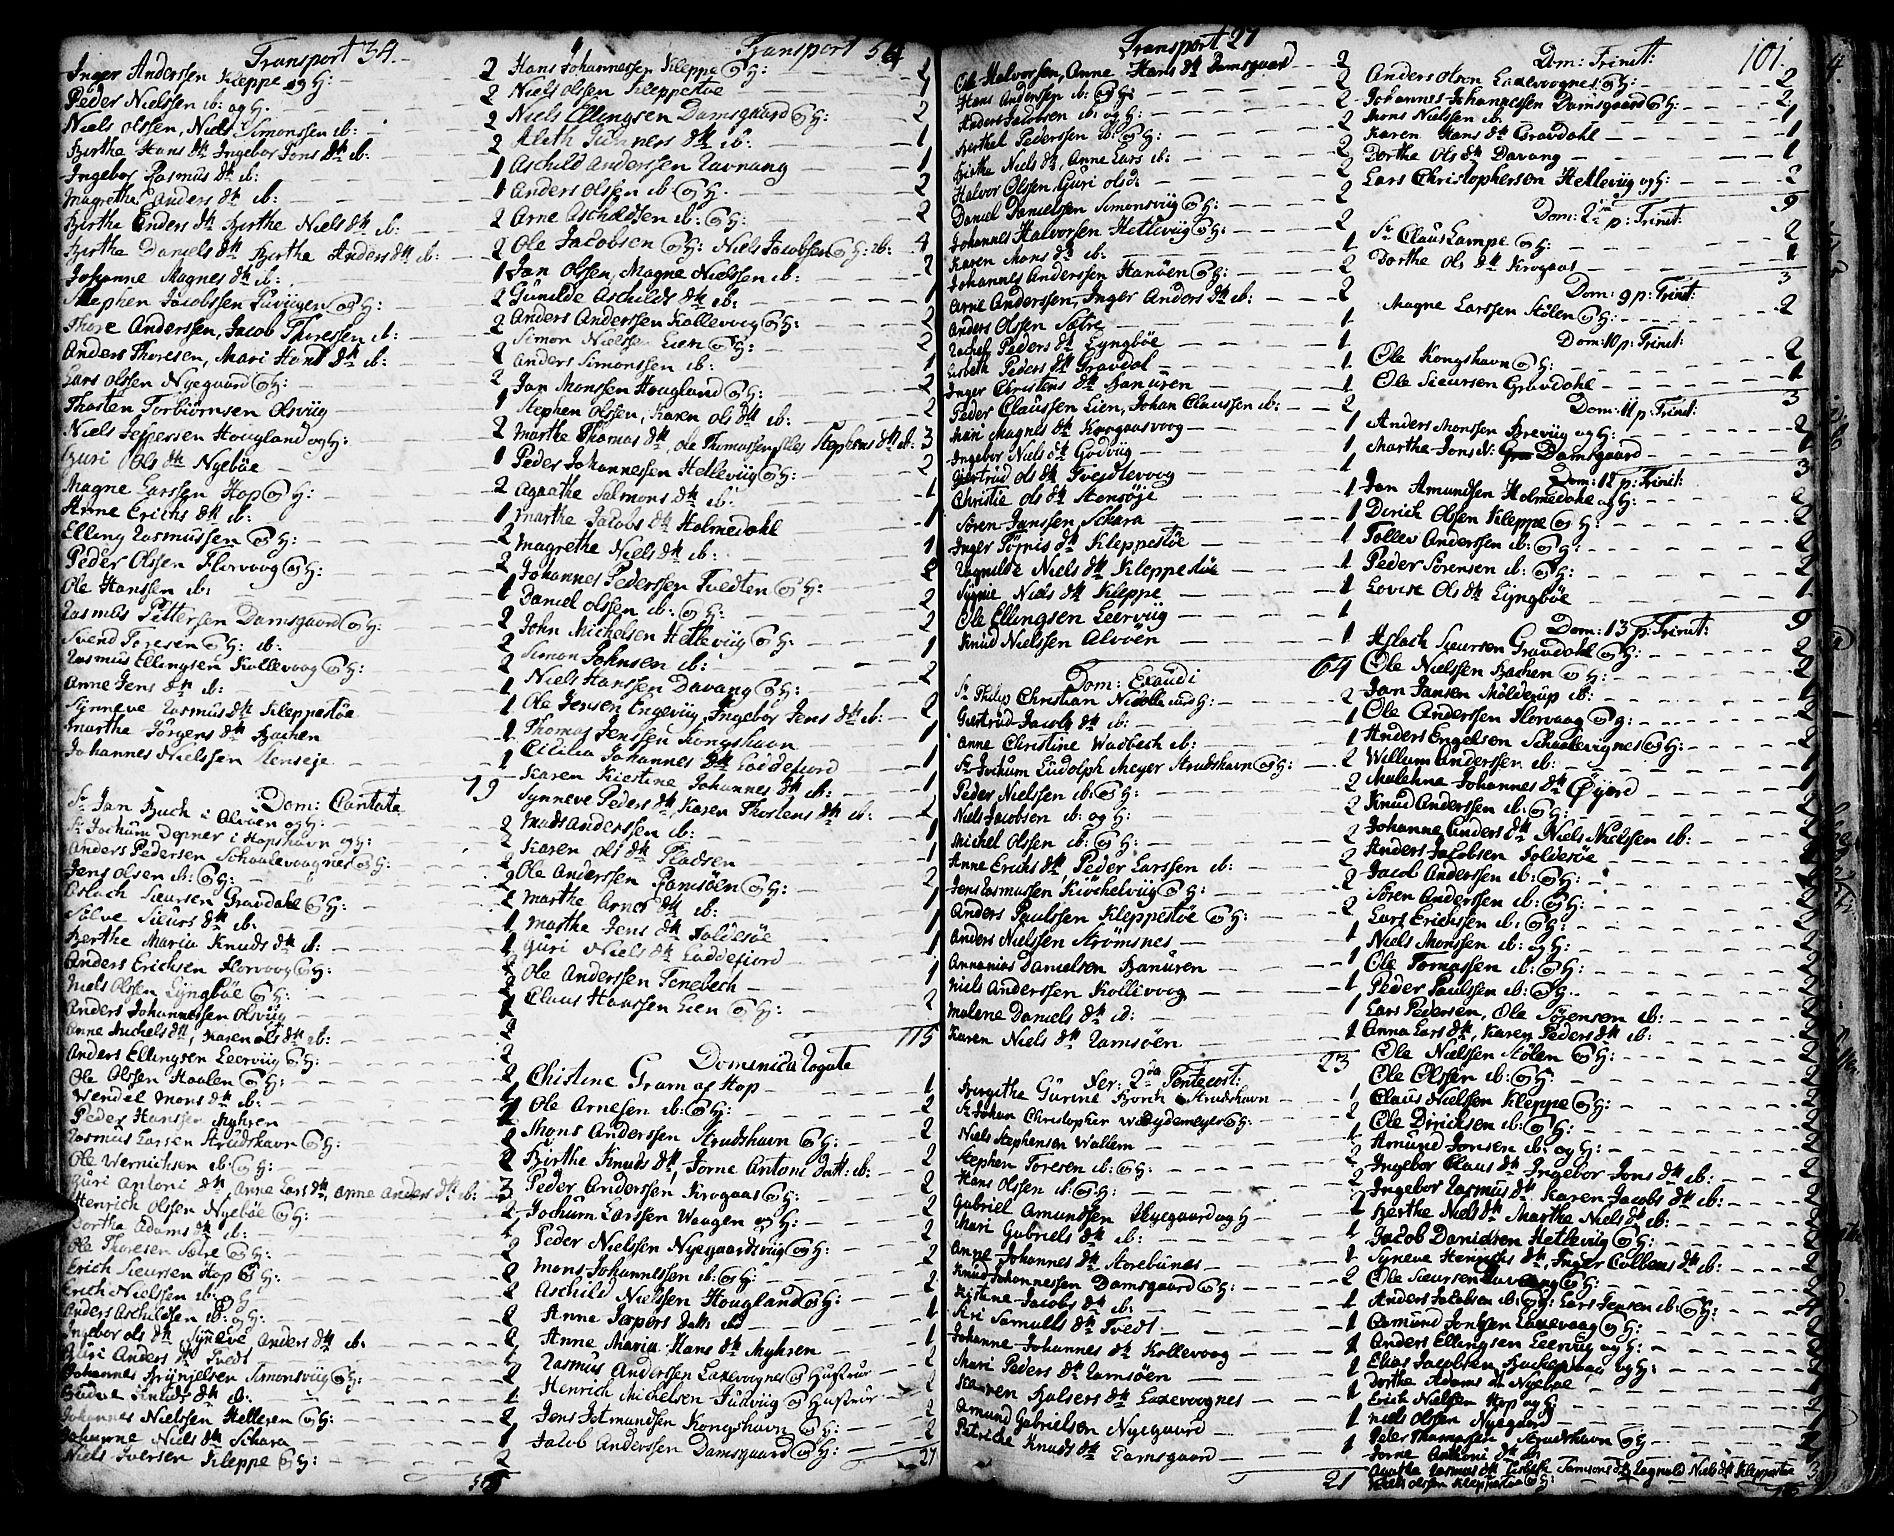 Transport 34.
Inger Anderssen Kleppe og H: 2
Peder Nielssen ib: og H. 2
Niels Olssen, Niels Simonssen ib: 2
Birthe Hans dtr Ingebor Jons dtr ib: 2
Ingebor Rasmus dtr ib: 1
Magrethe Anders dtr ib: 1
Birthe Enders dtr Birthe Niels dtr ib: 2
Birthe Daniels dtr Birthe Anders dtr ib: 2
Johanne Magnes dtr ib: 1
Stephen Jacobssen og H: 2
Thore Anderssen, Jacob Thoressen ib: 2
Anders Thoresen, Mari Hans dtr ib: 2
Lars Olssen Nyegaard og H: 2
Thosten Torbiörnsen Olsviig 1
Niels Jespersen Hougland og H: 2
Guri Ols dtr Nyebøe 1
Magne Larssen Hop og H: 2
Anne Erichs dtr ib: 1
Elling Rasmussen og H: 2
Peder Olssen Florvoog og H: 2
Ole Hanssen ib: 1
Rasmus Pettersen Damsgaard og H: 2
Svend Toresen og H: ib: 2
Rasmus Ellingsen Kollevoog og H: 2
Anne Jens dtr ib: 1
Synneve Rasmus dtr Kleppestøe 1
Marthe Jörgens dtr Bachen 1
Johannes Nielssen Stenseje 1
79
Dom: Cantate
Sr Jan Buch i Alvöen og H: 2
Sr Jochum Depner i Hopshavn og H: 2
Anders Pedersen Schaalevoognes og H: 2
Jens Olsen ib: og H: 2
Eslach Sieursen Gravdahl og H: 2
Sølve Sieurs dtr ib: 1
Berthe Maria Knuds dtr ib: 1
Anders Erichsen Florvoog og H: 2
Niels Olssen Lyngbøe og H: 2
Anders Johannessen Olsviig 1
Anne Michels dtr, Karen Ols dtr ib: 2
Anders Ellingsen Leerviig og H: 2
Ole Olssen Haalen og H: 2
Wendel Mons dtr ib: 1
Peder Hanssen Myhren 1
Rasmus Larsen Strudshavn og H: 2
Ole Wernichsen ib: og H: 2
Guri Antoni dtr Anne Lars dtr, Anne Anders dtr ib: 3
Henrich Olssen Nyebøe og H: 2
Dorthe Adams dtr ib: 1
Ole Thoresen Sætre og H: 2
Erich Sieursen Hop og H: 2
Erich Nielssen ib: og H: 2
Anders Aschildsen ib: og H: 2
Ingebor Ols dtr Syneve Anders dtr ib: 2
Guri Anders dtr Tvedt 1
Johannes Brynjelsen Simonsviig og H: 2
Gudve Knuds dtr ib: 1
Johannes Nielssen Hellesen og H: 2
Johanne Niels dtr Schara 1
Niels Iversen Kleppe og H: 2
Transport 54
Hans Johannessen Kleppe og H: 2
Niels Olssen Kleppestøe 1
Niels Ellingsen Damsgaard og H: 2
Aleth Gunners dtr ib: 1
Aschild Anderssen Ravnang 1
Anders Olssen ib og H: 2
Arne Aschildsen ib: og H: 2
Ole Jacobsen og H: Niels Jacobsen og H: ib: 4
Jan Olssen, Magne Nielssen ib: 2
Gunilde Aschilds dtr ib: 1
Anders Anderssen Kollevoog og H: 2
Simon Nielssen Lien og H: 2
Anders Simonssen ib: 1
Jan Monssen Hougland og H: 2
Stephen Olssen, Karen Ols dtr ib: 2
Marthe Thomas dtr, Ole Thomassen, Stephens dtr ib: 3
Peder Johannessen Hetleviig og H: 2
Agaathe Salmons dtr ib: 1
Marthe Jacobs dtr Holmedahl 1
Magrethe Niels dtr ib: 1
Johannes Pederssen Tvedten og H: 2
Daniel Olssen ib: og H: 2
John Michelsen Hetleviig og H: 2
Simon Johnsen ib: 1
Niels Hanssen Davang og H: 2
Ole Jensen Engeviig, Ingebor Jens dtr ib: 2
Thomas Jenssen Kongshavn 1
Cecilia Johannes dtr Laddefiord 1
Karen Kirstine Johannes dtr ib: 1
Synneve Peders dtr, Karen Thostens dtr ib: 2
Mads Anderssen ib: 1
Karen Ols dtr Stadsen 1
Ole Anderssen Ramsöen og H: 2
Marthe Arnes dtr ib: 1
Marthe Jens dtr Toldesøe 1
Guri Niels dtr Laddefiord 1
Ole Anderssen Tenebech 1
Claus Hanssen Lien og H: 2
115
Domenica Rogate
Chistine Gram af Hop 1
Ole Arnesen ib: og H: 2
Mons Anderssen Strudshavn og H: 2
Birthe Knuds dtr, Jorne Antoni datt: ib: 2
Peder Anderssen Krogaas og H: 2
Jochum Larssen Waagen og H: 2
Peder Nielssen Nyegaardsviig og H: 2
Mons Johannessen ib: og H: 2
Aschild Nielssen Hougland og H: 2
Anne Jespers datt: ibd 1
Anne Maria Hans dtr Myhren 1
Rasmus Anderssen Laxevoognes og Hustrue 2
Henrich Michelsen Gudviig og Hustrue 2
Jens Jetmundsen Kongshavn og H: 2
Jacob Anderssen Damsgaard og H: 2
27
Transport 27
Ole Halvorssen, Anne Hans dtr Damsgaard 2
Hans Anderssen ib: og H: 2
Anders Jacobsen ib: og H: 2
Berthel Pederssen ib: og H: 2
Birthe Niels dtr, Anne Lars ib: 2
Halvor Olssen, Guri Olsd: 2
Daniel Danielssen Simonsviig og H: 2
Johannes Halvorsen Hetleviig og H: 2
Karen Mons dtr ib: 1
Johannes Anderssen Hanöen og H: 2
Arne Anderssen, Inger Anders dtr ib: 2
Anders Olssen Sætre 1
Rachel Peders dtr Lyngbøe 1
Lisbeth Peders dtr Gravdal 1
Inger Christens dtr Banuren 1
Peder Claussen Lien, Johan Claussen ib: 2
Mari Magnes dtr Krogaasvoog 1
Ingebor Niels dtr Godviig 1
Giertrud Ols dtr Tvejdtevoog 1
Christie Ols dtr Stensøje 1
Sören Janssen Schara 1
Inger Tørris dtr Kleppestøe 1
Ragnilde Niels dtr Kleppestøe 1
Synnie Niels dtr Kleppe 1
Ole Ellingsen Leerviig 1
Knud Nielssen Alvöen 1
64
Dom: Exaudi
Sr Philip Christian Nicolle ibd H: 2
Giertrud Jacobs dtr ib: 1
Anne Christine Wadbech ib: 1
Sr Jochum Ludolph Meyer Strudshavn og H: 2
Peder Nielssen ib: og H: 2
Niels Jacobsen ib: og H: 2
Michel Olssen ib: og H: 2
Anne Erichs dtr, Peder Larssen ib: 2
Jens Rasmussen Kiöchelviig og H: 2
Anders Paulssen Kleppestøe og H: 2
Anders Nielssen Strømsnes 1
Annanias Danielsen Banuren 1
Niels Anderssen Kollevoog 1
Malene Daniels dtr ib: 1
Karen Niels dtr Ramsöen 1
23
Fer: 2da Pentecost:
Birgithe Gurine Borch Strudshavn 1
Sr Johan Christopher Weydemeyer og H: 2
Niels Stephensen Wallem 1
Stephen Toresen ib: og H: 2
Hans Olssen ib: og H: 2
Gabriel Amundsen Nyegaard og H 2
Mari Gabriels dtr ib: 1
Anne Johannes dtr Storebunes 1
Knud Johannessen Damsgaard og H: 2
Kistine Jacobs dtr ib: 1
Siri Samuels dtr Tvedt 1
Johanne Johannes dtr Kollevoog 1
Mari Peders dtr Ramsöen 1
Karen Balsers dtr Laxevoognes 1
Amund Gabrielsen Nyegaard 1
Petriche Knuds dtr Damsgaard 1
21
101.
Dom: Trinit:
Anders Olsen Laxevoognes og H: 2
Johannes Johannessen Damsgaard og H: 2
Mons Nielssen ib: 1
Karen Hans dtr Gravdahl 1
Dorthe Ols dtr Davang 1
Lars Christophersen Hetleviig og H: 2
9
Dom: 2da p: Trinit:
Sr Claus Lampe og H: 2
Dorthe Ols dtr Krogaas 1
3
Dom: 9 p: Trinit:
Magne Larssen Stölen og H: 2
Dom: 10 p: Trinit:
Ole Kongshavn og H: 2
Ole Sieursen Gravdahl 1
3
Dom: 11 p: Trinit:
Anders Monssen Breviig og H: 2
Marthe Jons dr: Damsgaard 1
3
Dom: 12 p: Trinit:
Jan Amundsen Holmedahl og H: 2
Dirich Olssen Kleppe og H: 2
Tollev Anderssen ib: og H: 2
Peder Sörensen ib: og H: 2
Lovise Ols dtr Lyngbøe 1
9
Dom: 13 p: Trinit:
Aslach Sieursen Gravdahl og H: 2
Ole Nielssen Bachen og H: 2
Jan Jansen Mölderup ib:
Ole Anderssen Florvaag og H: 2
Anders Engelsen Schaalevignes og H: 2
Willum Anderssen ib:
Malehne Johannes dtr Øyjord
Knud Anderssen ib: og H:
Johanne Anders dtr Niels Nielssen ib:
Anders Jacobsen Toldesøe
Jacob Anderssen ib: og H:
Sören Anderssen ib: og H:
Lars Erichsen ib: og H:
Niels Monssen ib: og H:
Ole Tomassen ib: og H:
Peder Paulssen ib: og H:
Lars Pedersen, Ole Sörensen ib:
Anna Lars dtr, Karen Peders dtr ib:
Ole Nielssen Stölen og H:
Ole Olssen ib: og H:
Claus Nielssen Kleppe og H:
Ole Dirichsen ib: og H:
Amund Jonsen ib: og H:
Ingebor Claus dtr Ingebor Jons dtr ib:
Ingebor Rasmus dtr Karen Jacobs dtr ib:
Berthe Niels dtr Marthe Niels dtr ib:
Jacob Danielsen Hetleviig og H:
Syneve Henrichs dtr, Inger Colbens dtr ib:
Ole Sieursen og H:
Anders Jacobsen ib: og H: Lars Jensen ib: og H:
Asmund Jonssen Laxevaag og H:
Anders Ellingsen Leerviig og H:
Elias Jacobsen og H:
Dorthe Adams dtr Nyebøe
Erich Nielsen Hop og H:
Niels Olssen Nyegaard
Peter Thomassen Strudshavn og H:
Jorne Antoni dtr ib:
Agathe Rasmus dtr Lisbeth Ragnild Niels dtr Kleppestøe
Niels Olssen Kleppestøe og H: